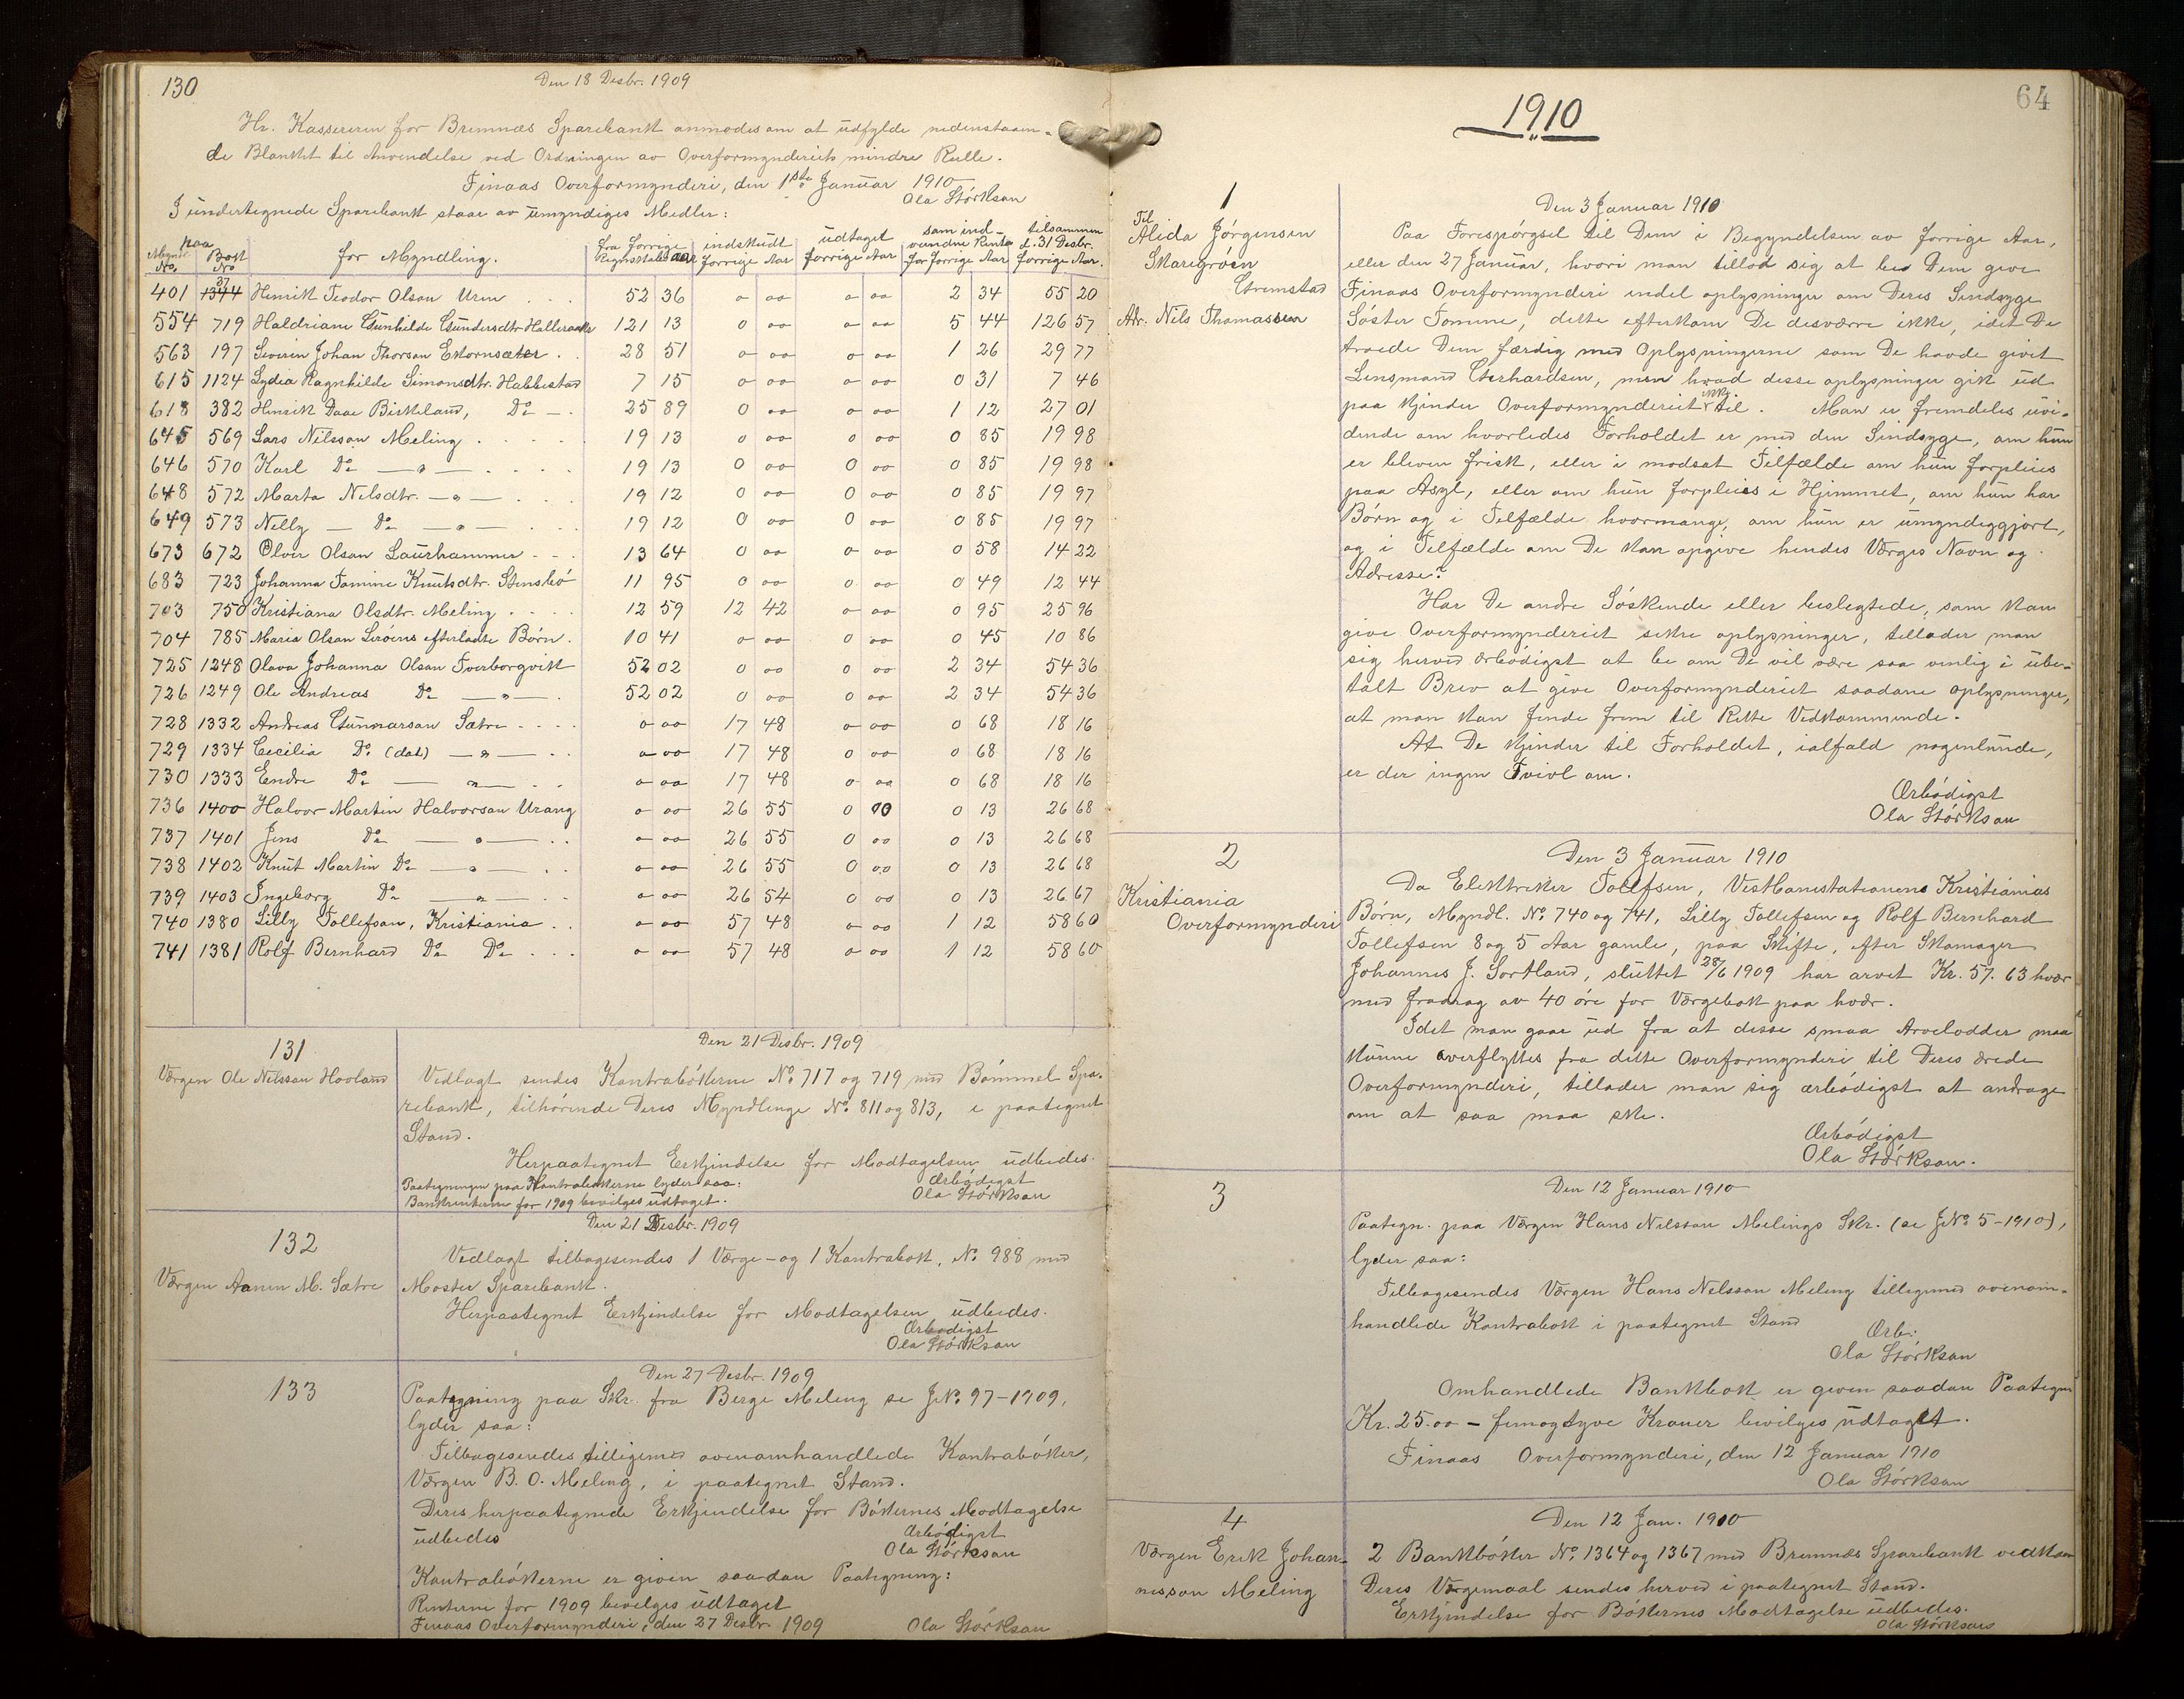 130
Den 18 Desbr. 1909
Hr. Kassereren for Bremnæs Sparebank anmodes om at udfylde nedenstaaen-
de Blanket til Anvendelse ved Ordningen av Overformynderiets mindre Rulle.
Finaas Overformynderi, den 1ste Januar 1910
Ola Størkson
I undertegnede Sparebank staar av umyndiges Midler:
Mynd. No. paa Bok No for Myndling. fra forrige Regnskabsaar indskudt forrige Aar udtaget forrige Aar som ind- vundne Renter for forrige Aar tilsammen d. 31 Desbr. forrige Aar.
401 1344 37 Henrik Teodor Olson Urm . . . 52 36 0 00 0 00 2 34 55 20
554 719 Haldriane Gunhilde Gundersdtr Halleraaker 121 13 0 00 0 00 5 44 126 57
563 197 Severin Johan Thorson Ektornsæter . . 28 51 0 00 0 00 1 26 29 77
615 1124 Lydia Ragnhilde Simonsdtr. Habbestad 7 15 0 00 0 00 0 31 7 46
618 382 Henrik Daae Birkeland, Do - . 25 89 0 00 0 00 1 12 27 01
645 569 Lars Nilsson Meling . . . . . 19 13 0 00 0 00 0 85 19 98
646 570 Karl Do — " — . . . . 19 13 0 00 0 00 0 85 19 98
648 572 Marta Nelsdtr. — " — . . . 19 12 0 00 0 00 0 85 19 97
649 573 Nelly — Do — " — . . . 19 12 0 00 0 00 0 85 19 97
673 672 Elver Olson Laurhammer - - - 13 64 0 00 0 00 0 58 14 22
683 723 Johanna Tomine Knutsdtr. Stensbø 11 95 0 00 0 00 0 49 12 44
703 750 Kristiana Olsdtr. Meling . . . . 12 59 12 42 0 00 0 95 25 96
704 785 Maria Olson Lerøens efterladte Børn . 10 41 0 00 0 00 0 45 10 86
725 1248 Olava Johanna Olson Tverborgvik 52 02 0 00 0 00 2 34 54 36
726 1249 Ole Andreas Do — " — . 52 02 0 00 0 00 2 34 54 36
728 1332 Andreas Gunnarson Sætre . . . . 0 00 17 48 0 00 0 68 18 16
729 1334 Cecilia Do (død) — " — . . 0 00 17 48 0 00 0 68 18 16
730 1333 Endre Do — " — . . 0 00 17 48 0 00 0 68 18 16
736 1400 Halvor Martin Halvorson Urang 0 00 26 55 0 00 0 13 26 68
737 1401 Jens Do — " — . . 0 00 26 55 0 00 0 13 26 68
738 1402 Knut Martin Do — " — . . 0 00 26 55 0 00 0 13 26 68
739 1403 Ingeborg Do — " — . . 0 00 26 54 0 00 0 13 26 67
740 1380 Lilly Tollefson, Kristiania . . 0 00 57 48 0 00 1 12 58 60
741 1381 Rolf Bernhard Do Do . . . 0 00 57 48 0 00 1 12 58 60
131
Værgen Ole Nilsson Hovland
Den 21 Desbr. 1909
Vedlagt sendes Kontrabøkerne No. 717 og 719 med Bømmel Spa-
rebank, tilhørende Deres Myndlinge No. 811 og 813, i paategnet
Stand.
Herpaategnet Erkjendelse for Modtagelsen udbedes.
Paategningen paa Kontrabøkerne lyder saa:
Ærbødigst
Bankrenterne for 1909 bevilges udtaget.
Ola Størkson
132
Værgen Aanen M. Sætre
Den 21 Desbr. 1909
Vedlagt tilbagesendes 1 Værge- og 1 Kontrabok, No. 988 med
Moster Sparebank.
Herpaategnet Erkjendelse for Modtagelsen udbedes.
Ærbødigst
Ola Størkson
133
Den 27 Desbr. 1909
Paategning paa Skr. fra Berge Meling se JNo. 97-1909,
lyder saa:
Tilbagesendes tilligemed ovenomhandlede Kontrabøker,
Værgen B. O. Meling, i paategnet Stand.
Deres herpaategnede Erkjendelse for Bøkernes Modtagelse
udbedes
Ærbødigst
Ola Størkson
Kontrabøkerne er given saadan Paategning:
Renterne for 1909 bevilges udtaget
Finaas Overformynderi, den 27 Desbr. 1909 Ola Størkson
64
1910
1
Til
Alida Jørgensen
Skaregrøen
Grimstad
Adr. Nils Thomassen
Den 3 Januar 1910
Paa Forespørgsel til Dem i Begyndelsen av forrige Aar,
eller den 27 Januar, hvori man tillod sig at bed Dem give
Finaas Overformynderi endel oplysninger om Deres Sindsyge
Søster Tomine, dette efterkom De desværre ikke, idet De
troede Dem færdig med Oplysningerne som De havde givet
Lensmand Gerhardsen, men hvad disse oplysninger gik ud
paa kjender Overformynderiet ikke til. Man er fremdeles uvi-
dende om hvorledes Forholdet er med den Sindsyge, om hun
er bleven frisk, eller i modsat Tilfælde om hun forpleies
paa Asyl, eller om hun forpleies i Hjemmet, om hun har
Børn og i Tilfælde hvormange, om hun er umyndiggjort,
og i Tilfælde om De kan opgive hendes Værges Navn og
Adresse?
Har De andre Søskende eller beslegtede, som kan
give Overformynderiet sikre oplysninger, tillader man
sig herved ærbødigst at be om De vil være saa venlig i ube-
talt Brev at give Overformynderiet saadane oplysninger,
at man kan finde frem til Rette Vedkommende.
At De kjender til Forholdet, ialfald nogenlunde,
er der ingen Tvivl om.
Ærbødigst
Ola Størkson
2
Kristiania
Overformynderi
Den 3 Januar 1910
Da Elektriker Tollefsen, Vestbanestationens Kristianias
Børn, Myndl. No. 740 og 741, Lilly Tollefsen og Rolf Bernhard
Tollefsen 8 og 5 Aar gamle, paa Skifte, efter Skomager
Johannes J. Sortland, sluttet 28/6 1909 har arvet Kr. 57.63 hver
med fradrag av 40 øre for Værgebok paa hver.
Idet man gaar ud fra at disse smaa Arvelodder maa
kunne overflyttes fra dette Overformynderi til Deres ærede
Overformynderi, tillader man sig ærbødigst at andrage
om at saa maa ske.
Ærbødigst
Ola Størkson.
3
Den 12 Januar 1910
Paategn. paa Værgen Hans Nilsson Melings Skr. (se JNo. 5-1910),
lyder saa:
Tilbagesendes Værgen Hans Nelsson Meling tilligemed ovenom-
handlede Kontrabok i paategnet Stand
Ærb:
Ola Størkson
Omhandlede Bankbok er given saadan Paategn
Kr. 25.00 - femogtyve Kroner bevilges udtaget.
Finaas Overformynderi, den 12 Januar 1910
Ola Størkson
4
Værgen Erik Johan-
nesson Meling
Den 12 Jan. 1910
2 Bankbøker No. 1364 og 1367 med Bremnæs Sparebank vedkom
Deres Værgemaal sendes herved i paategnet Stand.
Erkjendelse for Bøkernes Modtagelse udbedes.
Ola Størkson